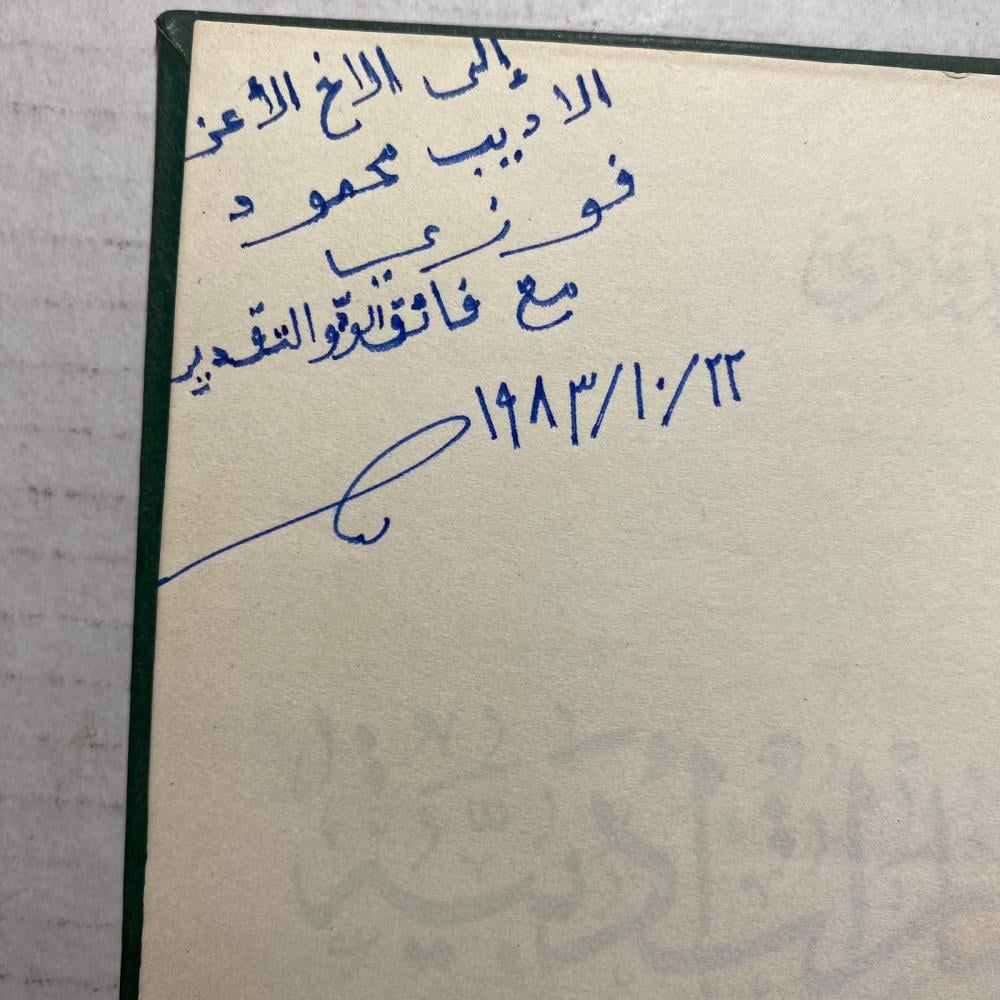 إلى الاخ الأعز
الاديب محمود
فوزي
مع فائق الودّ والتقدير
١٩٨٣/١٠/٢٢